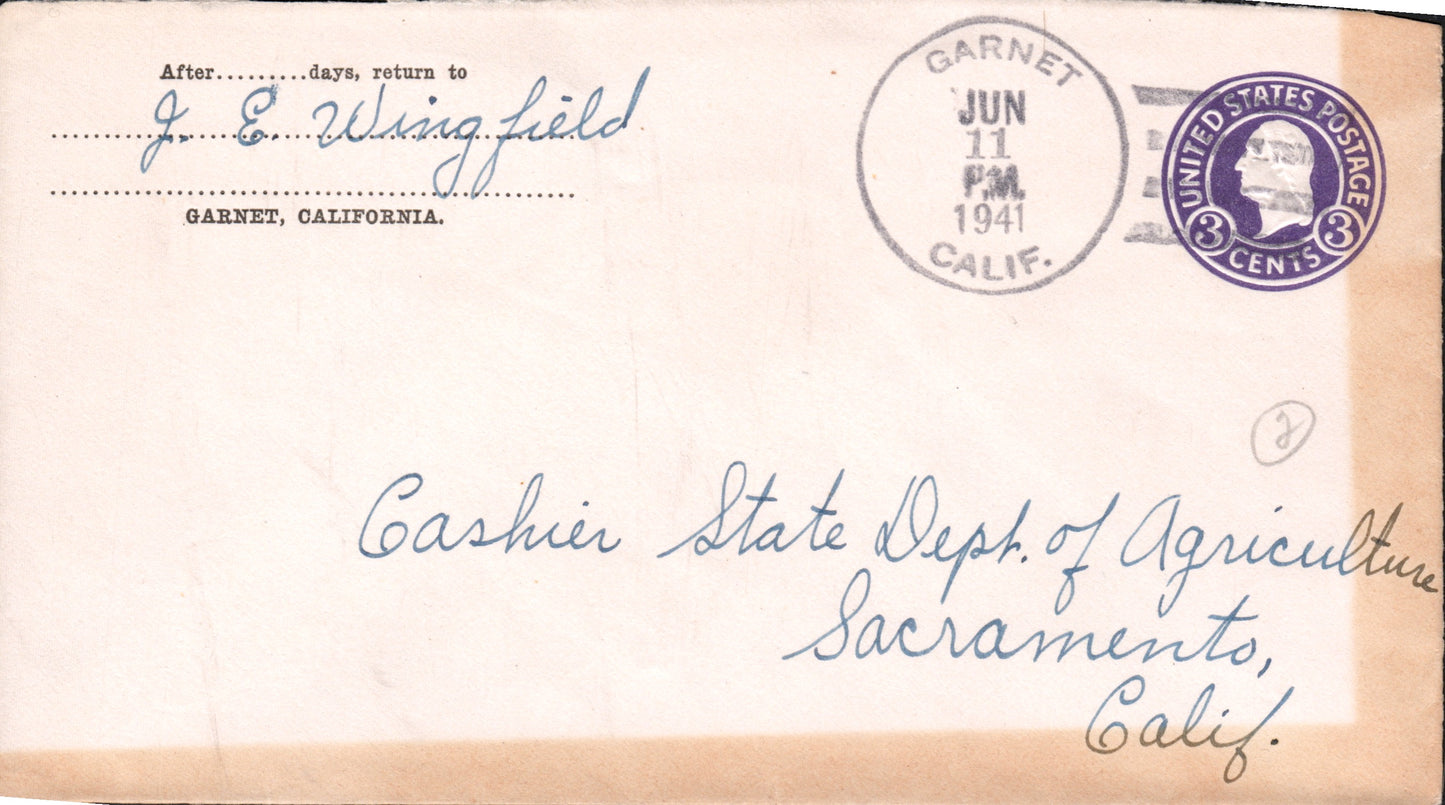 After.........days, return to
J. E. Wingfield
GARNET, CALIFORNIA.
GARNET
JUN
11
P.M.
1941
CALIF.
UNITED STATES POSTAGE
3 CENTS 3
2
Cashier State Dept. of Agriculture
Sacramento,
Calif.